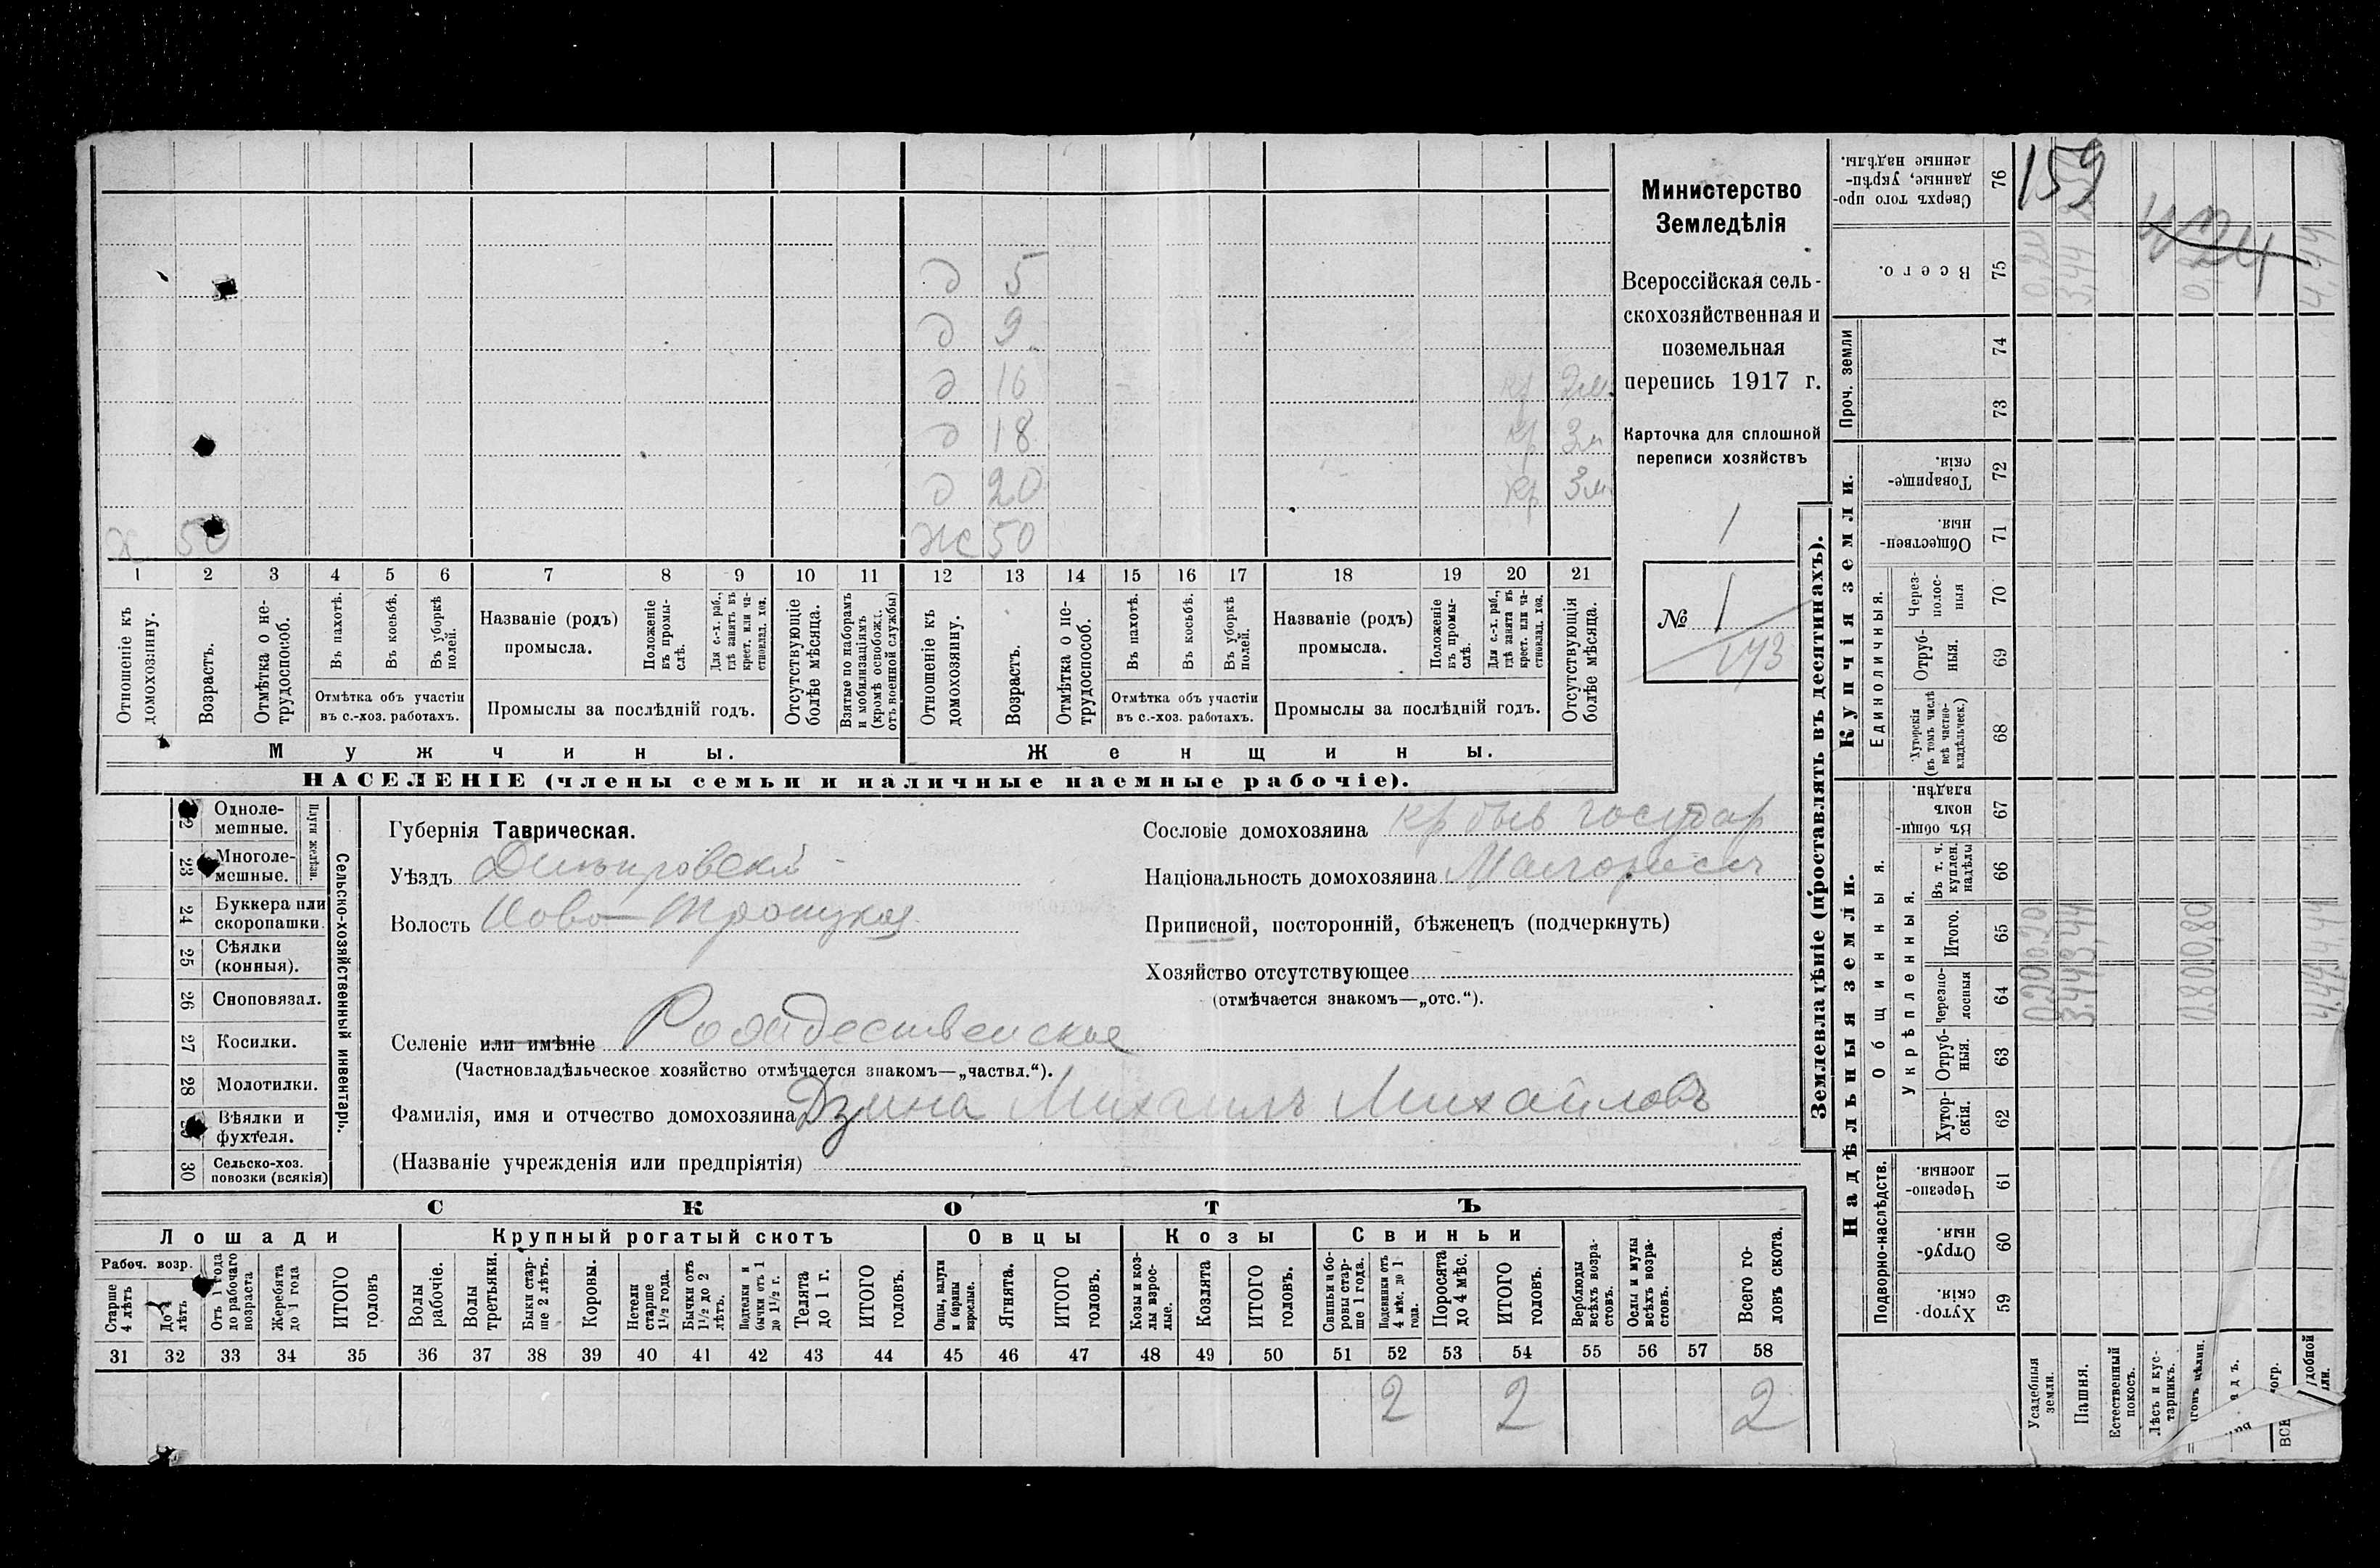 д 5
д 9
д 16 кр 2 м.
д 18 кр 3 м
д 20 кр 3 м
х 50 ж 50
1 2 3 4 5 6 7 8 9 10 11 12 13 14 15 16 17 18 19 20 21
Отношеніе къ домохозяину.
Возрастъ.
Отмѣтка о нетрудоспособ.
Въ пахотѣ.
Въ косьбѣ.
Въ уборкѣ полей.
Отмѣтка объ участіи
въ с.-хоз. работахъ.
Названіе (родъ)
промысла.
Положеніе въ промыслѣ.
Для с.-х. раб., гдѣ занятъ въ крест. или частновлад. хоз.
Промыслы за послѣдній годъ.
Отсутствующіе болѣе мѣсяца.
Взятые по наборамъ и мобилизаціямъ (кромѣ освобожд. отъ военной службы)
Отношеніе къ домохозяину.
Возрастъ.
Отмѣтка о нетрудоспособ.
Въ пахотѣ.
Въ косьбѣ.
Въ уборкѣ полей.
Отмѣтка объ участіи
въ с.-хоз. работахъ.
Названіе (родъ)
промысла.
Положеніе въ промыслѣ.
Для с.-х. раб., гдѣ занята въ крест. или частновлад. хоз.
Промыслы за послѣдній годъ.
Отсутствующія болѣе мѣсяца.
Мужчины. Женщины.
НАСЕЛЕНІЕ (члены семьи и наличные наемные рабочіе).
Министерство
Земледѣлія
Всероссійская сель-
скохозяйственная и
поземельная
перепись 1917 г.
Карточка для сплошной
переписи хозяйствъ
1
№ 1
173
Сельско-хозяйственный инвентарь.
Плуги желѣзн.
Одноле-
мешные.
23 Многоле-
мешные.
24 Буккера или
скоропашки.
25 Сѣялки
(конныя).
26 Сноповязал.
27 Косилки.
28 Молотилки.
Вѣялки и
фухтеля.
30 Сельско-хоз.
повозки (всякія)
Губернія Таврическая.
Уѣздъ Днѣпровскій
Волость Ново-Троицкая
Селеніе или имѣніе Рождественское
(Частновладѣльческое хозяйство отмѣчается знакомъ—„частвл.“).
Фамилія, имя и отчество домохозяина Дзина Михаилъ Михайловъ
(Названіе учрежденія или предпріятія)
Сословіе домохозяина кр бывъ государ
Національность домохозяина Малороссъ
Приписной, посторонній, бѣженецъ (подчеркнуть)
Хозяйство отсутствующее
(отмѣчается знакомъ—„отс.“).
СКОТЪ
Лошади Крупный рогатый скотъ Овцы Козы Свиньи
Рабоч. возр.
Старше 4 лѣтъ
До 4 лѣтъ
Отъ 1 года до рабочаго возраста
Жеребята до 1 года
ИТОГО головъ
Волы рабочіе.
Волы третьяки.
Быки старше 2 лѣтъ.
Коровы.
Нетели старше 1½ года.
Бычки отъ 1½ до 2 лѣтъ.
Подтелки и бычки отъ 1 до 1½ г.
Телята до 1 г.
ИТОГО головъ.
Овцы, валухи и бараны взрослые.
Ягнята.
ИТОГО головъ.
Козы и козлы взрослые.
Козлята
ИТОГО головъ.
Свиньи и боровы старше 1 года.
Подсвинки отъ 4 мѣс. до 1 года.
Поросята до 4 мѣс.
ИТОГО головъ.
Верблюды всѣхъ возрастовъ.
Ослы и мулы всѣхъ возрастовъ.
Всего головъ скота.
31 32 33 34 35 36 37 38 39 40 41 42 43 44 45 46 47 48 49 50 51 52 53 54 55 56 57 58
2 2 2
Землевладѣніе (проставлять въ десятинахъ).
Надѣльныя земли. Купчія земли. Проч. земли
Подворно-наслѣдств.
Общинныя.
Укрѣпленныя.
Единоличныя.
Хуторскія. 59
Отрубныя. 60
Черезполосныя. 61
Хуторскія. 62
Отрубныя. 63
Черезполосныя 64
Итого. 65
Въ т. ч. куплен. надѣлы 66
Въ общиномъ владѣн. 67
Хуторскія (въ томъ числѣ всѣ частновладѣльческ.) 68
Отрубныя. 69
Черезполосныя 70
Общественныя. 71
Товарищескія. 72
73
74
Всего. 75
Сверхъ того проданные, укрѣпленные надѣлы. 76
Усадебныя земли. 0,20 0,20 0,20
Пашня. 3,44 3,44 3,44
Естественный покосъ.
Лѣсъ и кустарникъ.
0,80 0,80
4,44 4,44 4,44
159